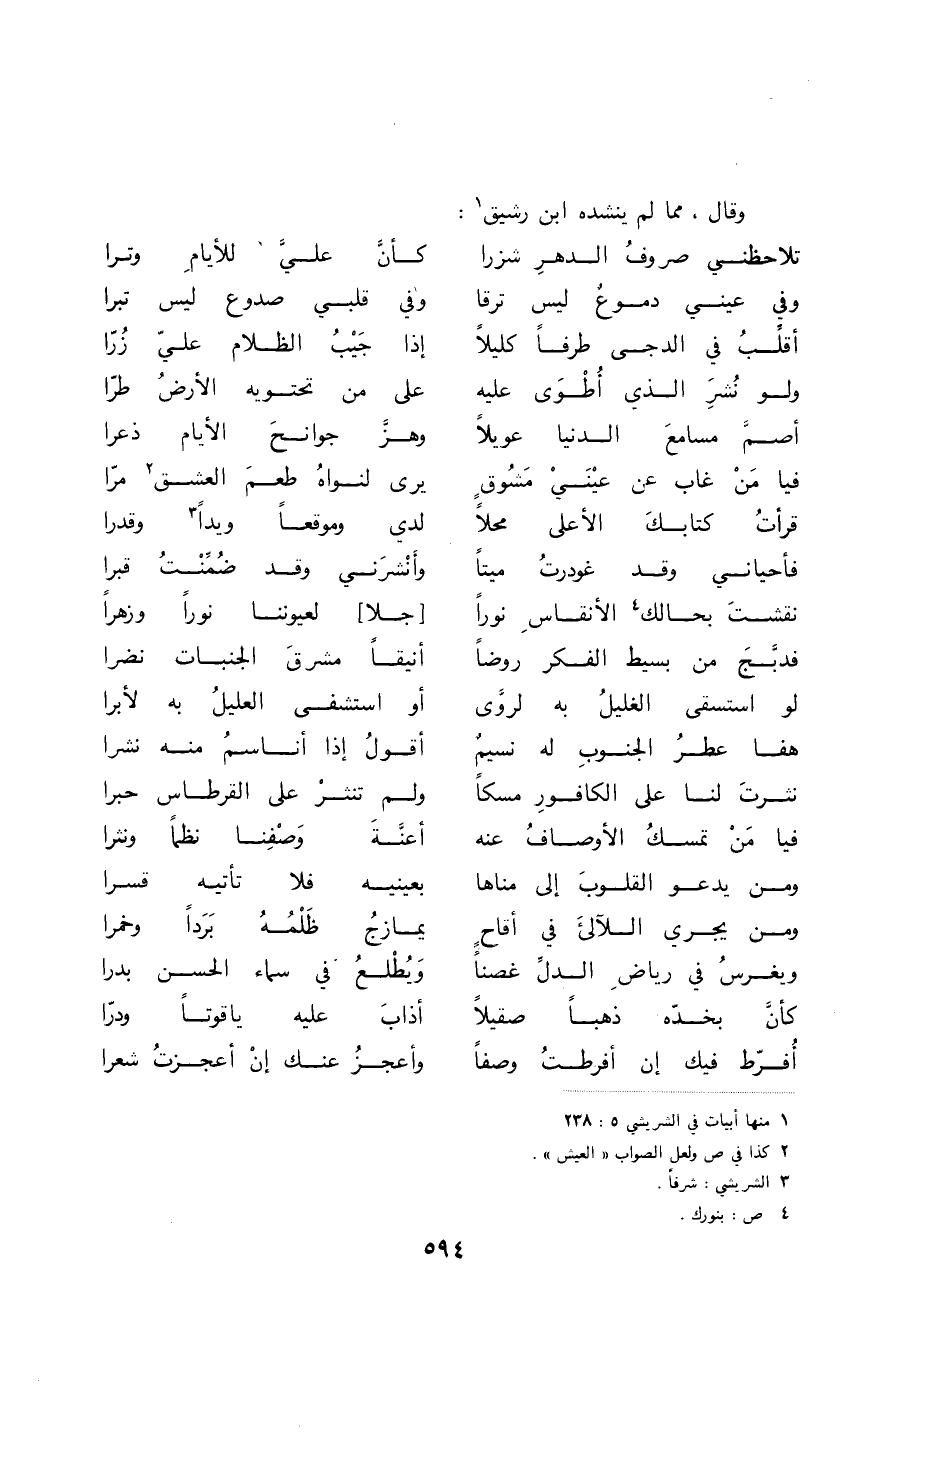 وقال ، مما لم ينشده ابن رشيق١ :
تلاحظني صروفُ الدهرِ شزرا كأنَّ عليَّ للأيامِ وترا
وفي عيني دموعٌ ليس ترقا وفي قلبي صدوع ليس تبرا
أقلّبُ في الدجى طرفاً كليلاً إذا جَيْبُ الظلام عليّ زُرّا
ولو نُشرَ الذي أُطْوَى عليه على من تحتويه الأرضُ طرّا
أصمَّ مسامعَ الدنيا عويلاً وهزَّ جوانحَ الأيام ذعرا
فيا مَنْ غاب عن عيْنَيْ مَشُوقٍ يرى لنواهُ طعمَ العشق٢ مرّا
قرأتُ كتابكَ الأعلى محلاً لدي وموقعاً ويداً٣ وقدرا
فأحياني وقد غودرتُ ميتاً وأنْشَرَني وقد ضُمِّنْتُ قبرا
نقشتَ بحالك٤ الأنقاسِ نوراً [جلا] لعيوننا نوراً وزهراً
فدبَّجَ من بسيط الفكر روضاً أنيقاً مشرقَ الجنبات نضرا
لو استسقى الغليلُ به لروَّى أو استشفى العليلُ به لأبرا
هفا عطرُ الجنوبِ له نسيمٌ أقولُ إذا أناسمُ منه نشرا
نثرتَ لنا على الكافورِ مسكاً ولم تنثرْ على القرطاس حبرا
فيا مَنْ تمسكُ الأوصافُ عنه أعنَّةَ وَصْفِنا نظماً ونثرا
ومن يدعو القلوبَ إلى مناها بعينيه فلا تأتيه قسرا
ومن يجري اللآلئَ في أقاحٍ يمازجُ ظَلْمُهُ بَرَداً وخمرا
ويغرسُ في رياضِ الدلّ غصناً وَيُطْلعُ في سماء الحسن بدرا
كأنَّ بخدّه ذهباً صقيلاً أذابَ عليه ياقوتاً ودرّا
أُفرّط فيك إن أفرطتُ وصفاً وأعجزُ عنك إنْ أعجزتُ شعرا
١ منها أبيات في الشريشي ٥ : ٢٣٨
٢ كذا في ص ولعل الصواب « العيش » .
٣ الشريشي : شرفاً .
٤ ص : بنورك .
٥٩٤